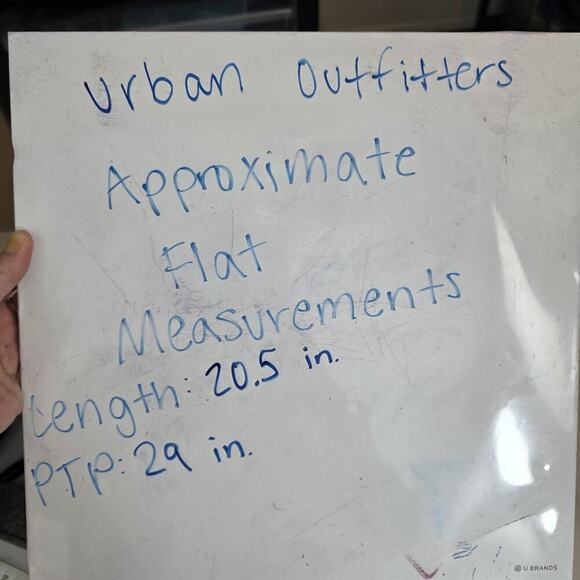 Urban Outfitters
Approximate
Flat
Measurements
Length: 20.5 in.
PTP: 29 in.
U BRANDS